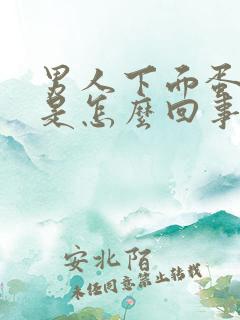 男人下面蛋
是怎麽回事
安北陌
未经同意禁止转载